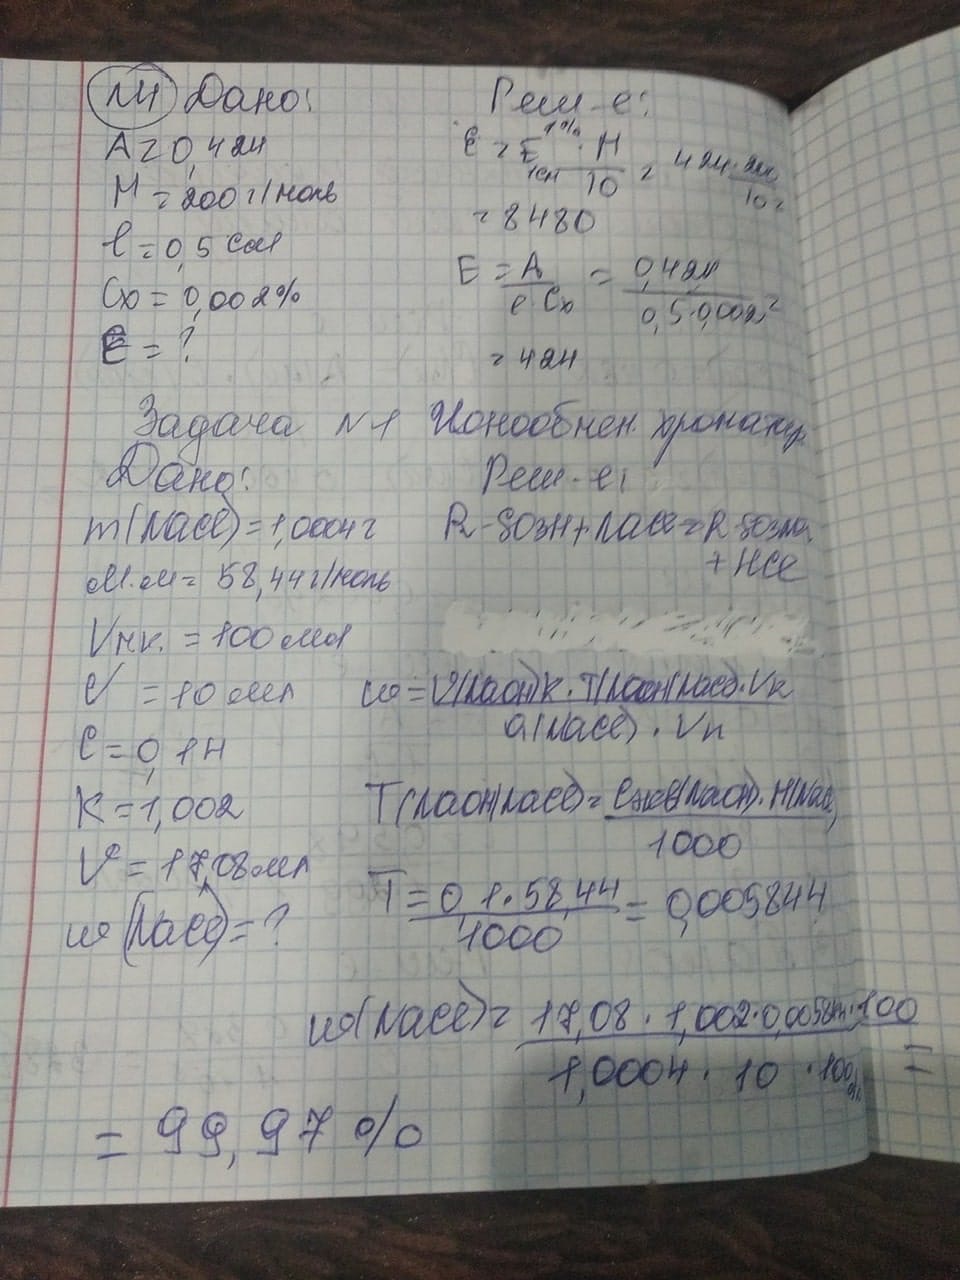 №4 Дано: Реш-е:
A = 0,424
M = 200 г/моль
l = 0,5 см
Cx = 0,002%
E = ?
ε = E 1% 1см · M / 10 = 424 · 200 / 10 =
= 8480
E = A / l · Cx = 0,424 / 0,5 · 0,002 =
= 424
Задача №1 Ионообмен. хроматогр.
Дано: Реш-е:
m(NaCl) = 1,0004 г
М.м = 58,44 г/моль
Vм.к. = 100 мл
V = 10 мл
C = 0,1 н
K = 1,002
V = 17,08 мл
ω(NaCl) = ?
R-SO3H + NaCl = R-SO3Na
+ HCl
ω = V(NaOH)K · T(NaOH|NaCl) · Vк / a(NaCl) · Vп
T(NaOH|NaCl) = Cэкв(NaOH) · M(NaCl) / 1000
T = 0,1 · 58,44 / 1000 = 0,005844
ω(NaCl) = 17,08 · 1,002 · 0,005844 · 100 / 1,0004 · 10 · 100% =
= 99,97 %